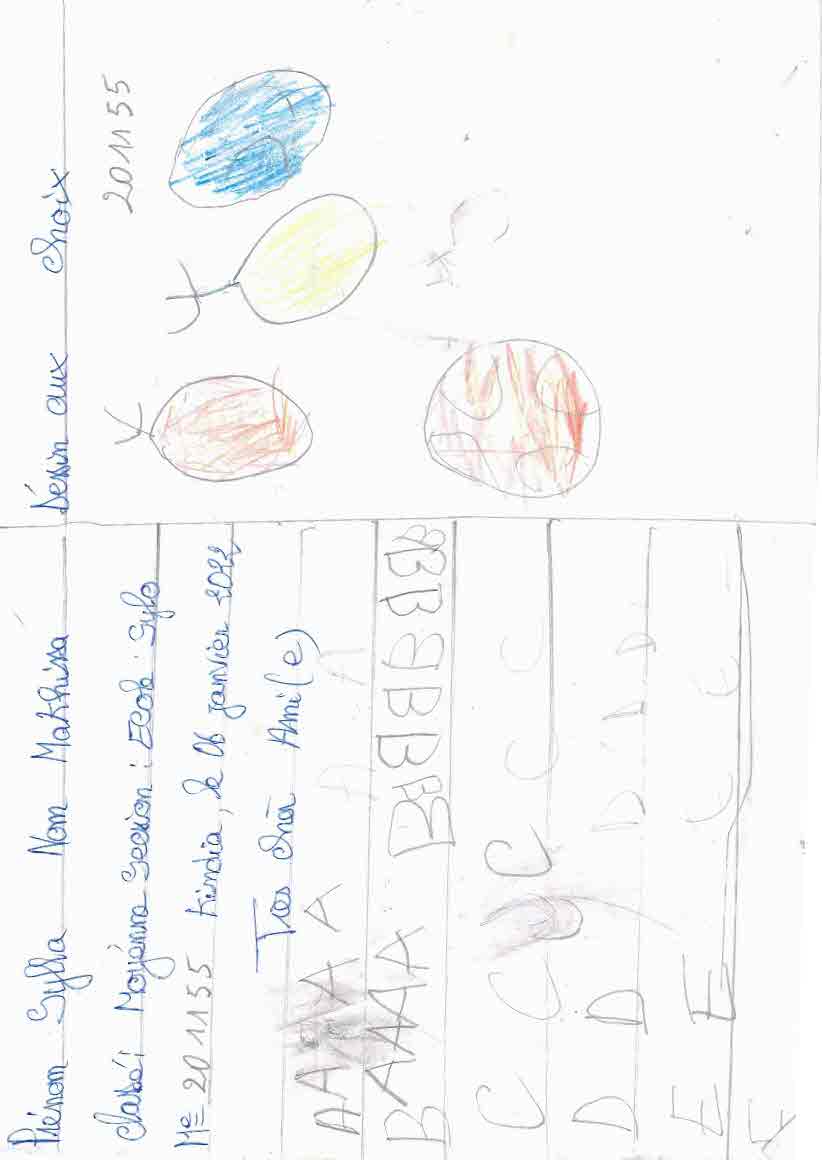 Prénom Sylla Nom Makhissa
Classé: Moyenne Section: Ecole: Sylo
Me 201155 Kindia, le 06 janvier 2022
Tres cher Ami(e)
A A A A A A A
B A A A A B B B B B B B
C C C C C C
D D D D D D
E E
F
Déssin aux choix
201155